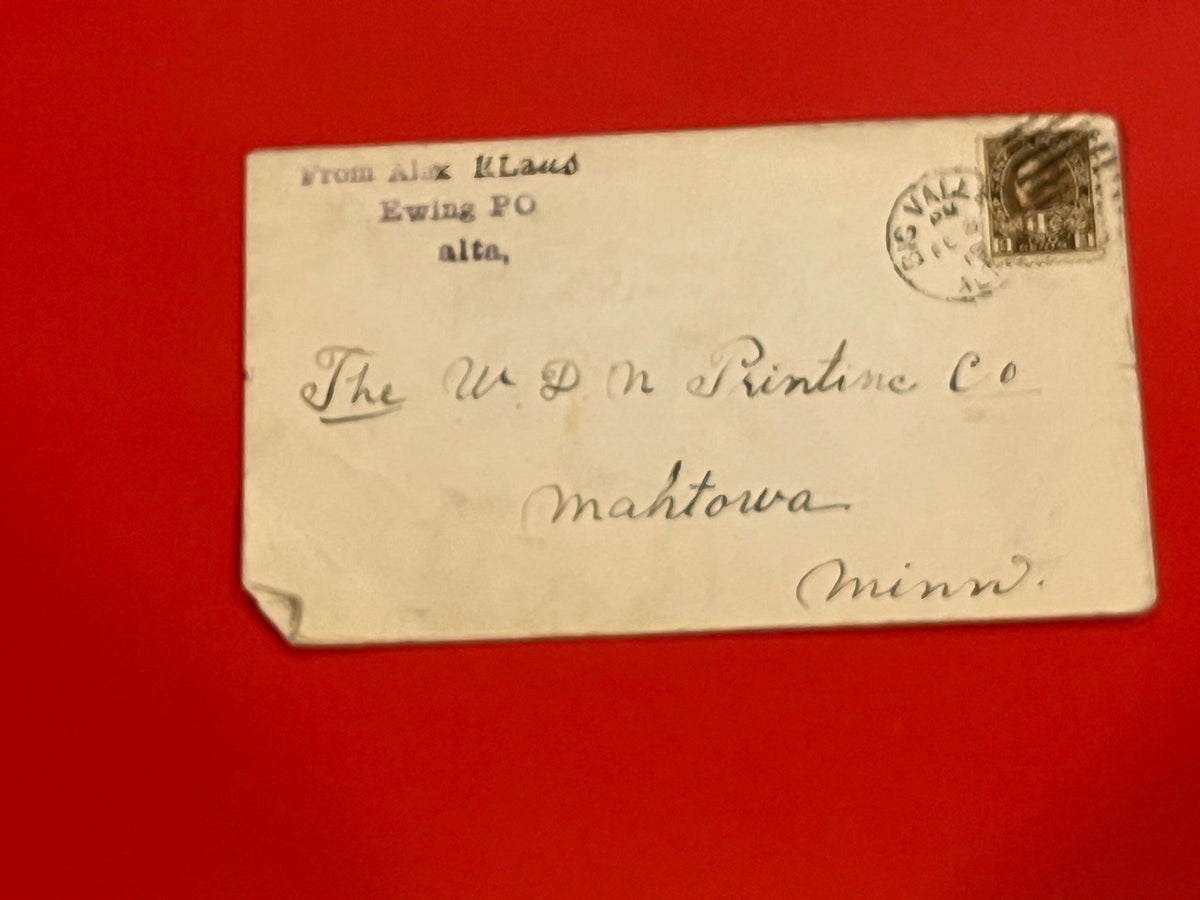 From Alex KLaus
Ewing PO
alta,
BIG VALL
The W. D N Printing Co
Mahtowa
Minn.